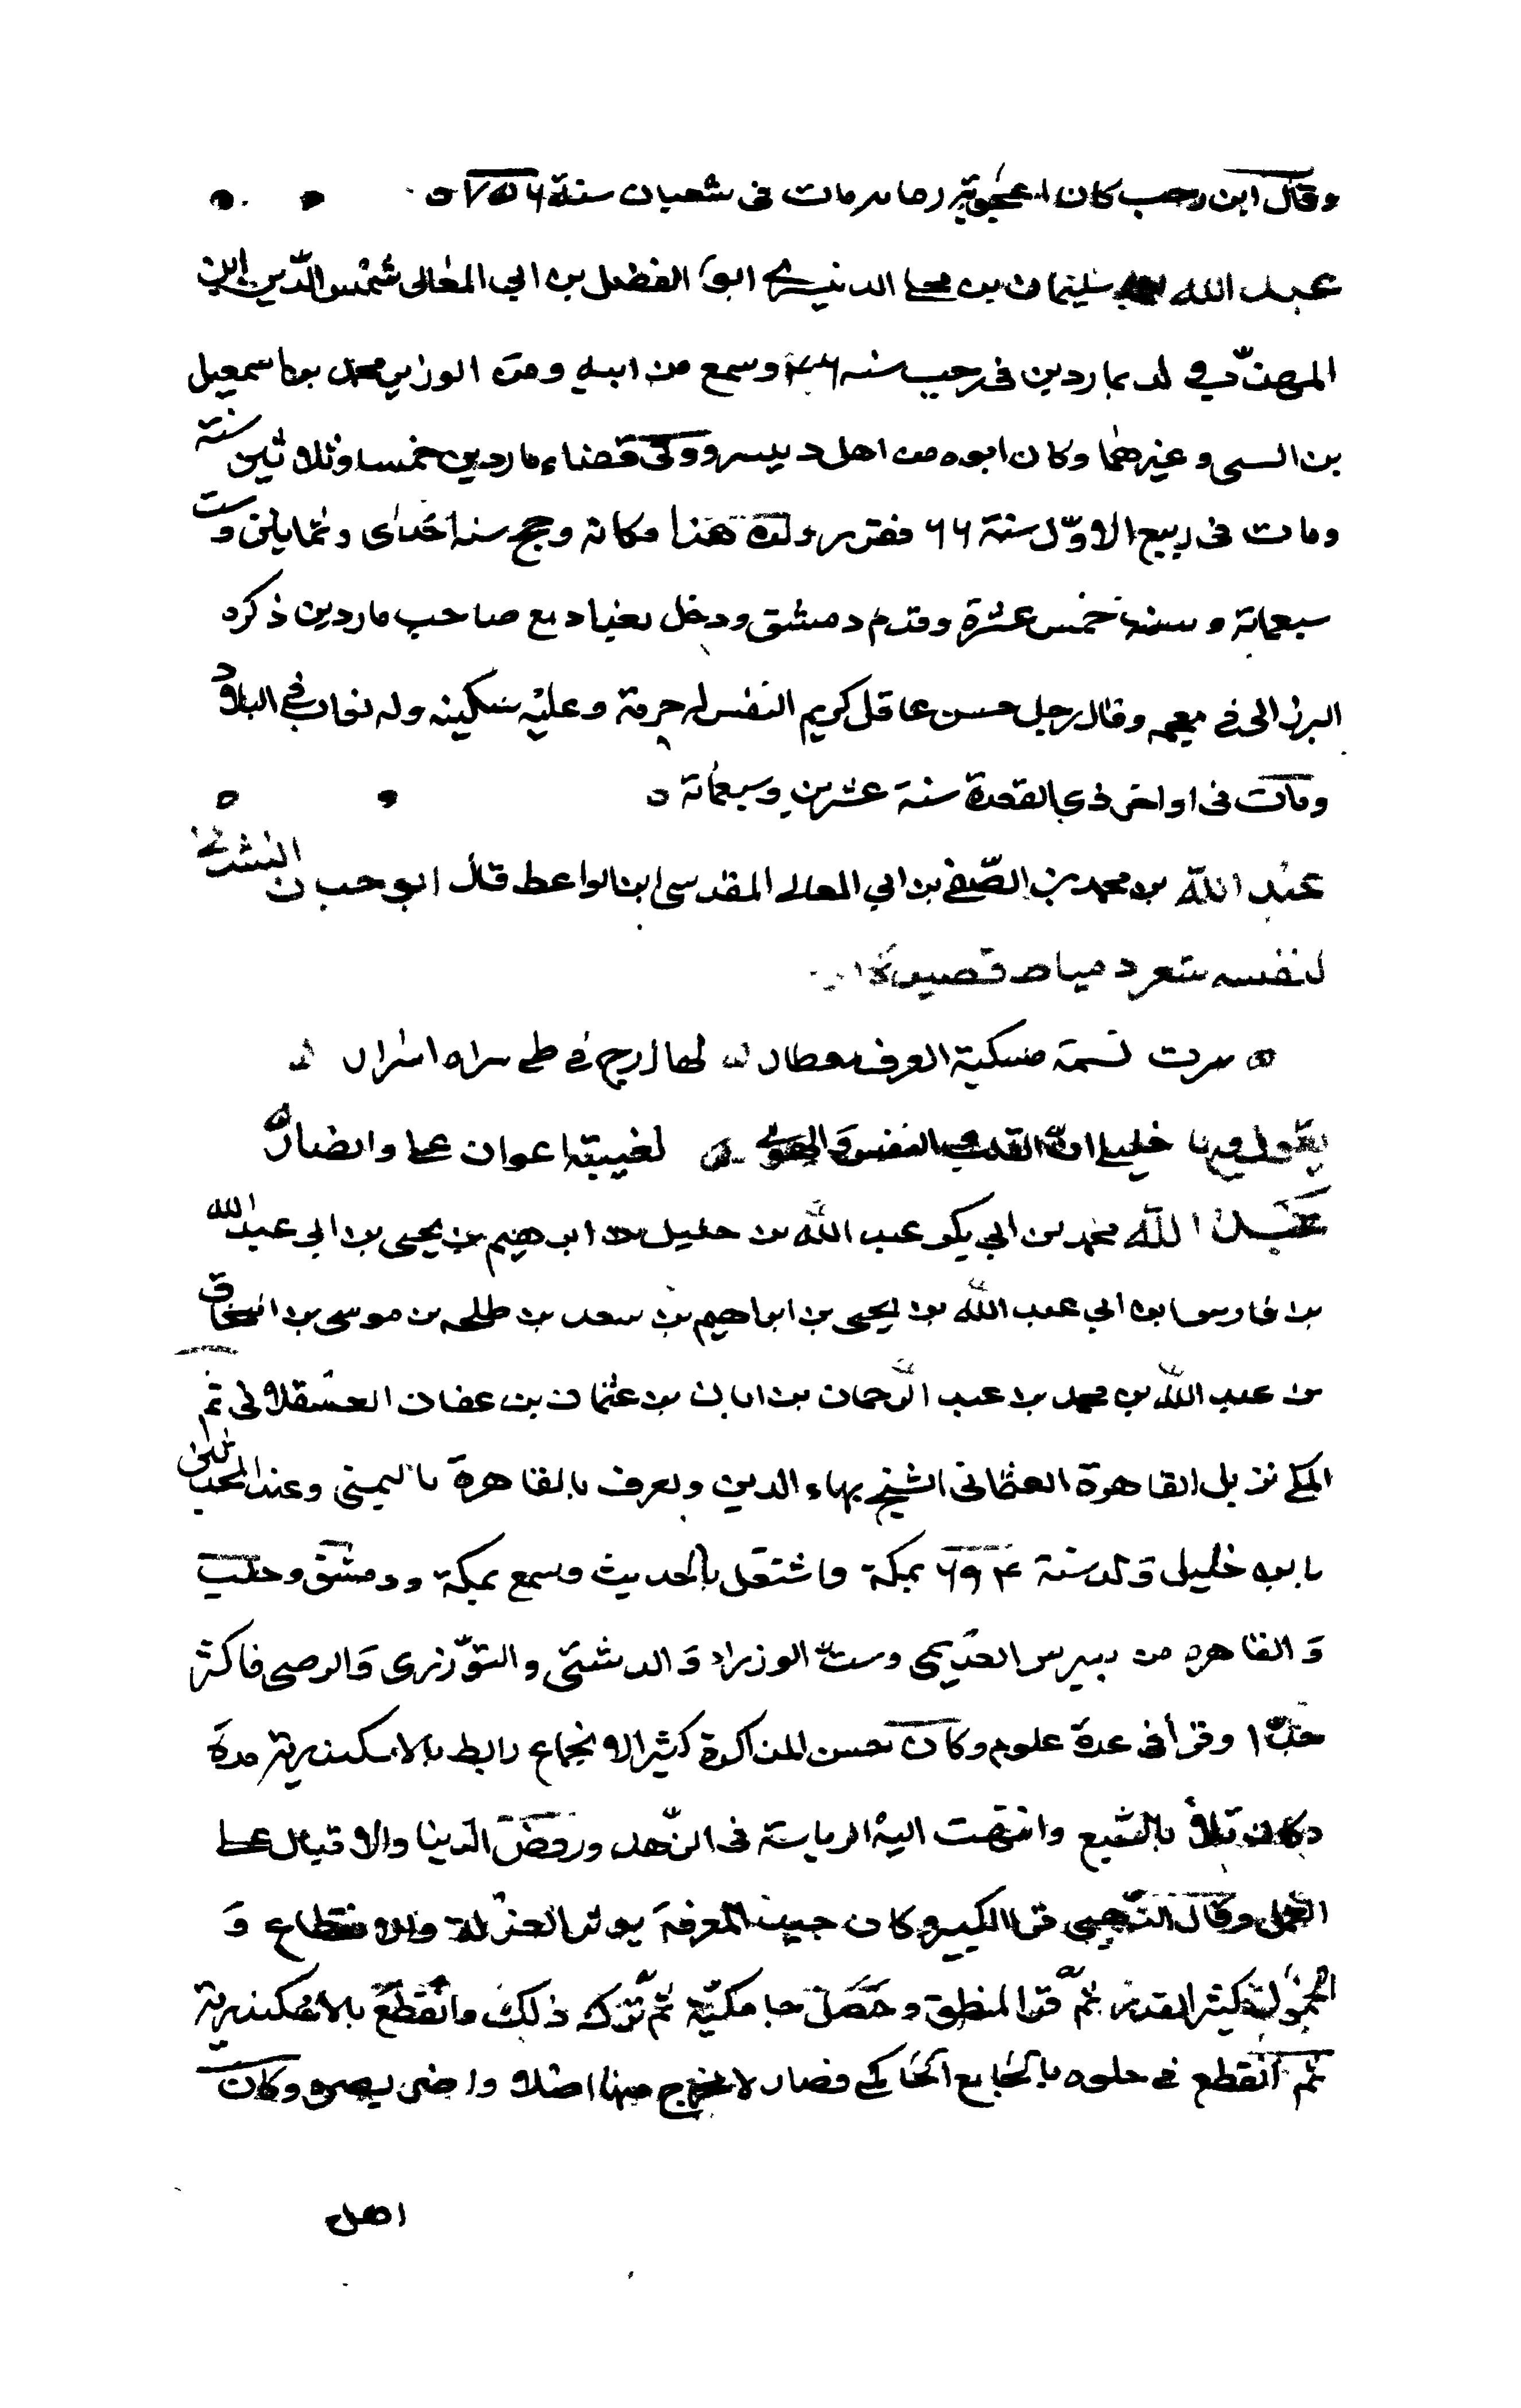 وقال ابن رجب كان اعجوبة زمانه مات فى شعبان سنة ٧٥٦ ه
عبد الله بن سليمان بن محمد الدنيسرى ابو الفضل بن ابي المعالى شمس الدين ابن
المهذب ولد بماردين فى رجب سنه وسمع من ابيه ومن الوزير محمد بن اسمعيل
بن السنى وغيرهما وكان ابوه من اهل دنيسر وولى قضاء ماردين خمسا وثلاثين سنة
ومات فى ربيع الاوّل سنة ٦٦ فقرر ولده هذا مكانه وحج سنه احدى وثمانين وست
سبعمائة وسنة خمس عشرة وقدم دمشق ودخل بغداد مع صاحب ماردين ذكره
البرزالى فى معجمه وقال رجل حسن عاقل كريم النفس له حرمة وعليه سكينه وله نواب فى البلاد
ومات فى اواخر ذي القعدة سنة عشرين وسبعمائة ه
عبد الله بن محمد بن الصّفى بن ابي المعالى المقدسى ابن الواعظ قال ابو حيان انشدنى
لنفسه بثغر دمياط قصيدة
ه سرت نسمة مسكية العرف معطار لها ارج فى طى مسراه اسرار
يقول فيها خليلى ان القلب والنفس والهوى لغيبتها عوان على وانصار ه
عبد الله محمد بن ابي بكر عبد الله بن خليل بن ابرهيم بن يحيى بن ابي عبد الله
بن فارس بن ابي عبد الله بن يحيى بن ابراهيم بن سعد بن طلحه بن موسى بن اسحاق
بن عبد الله بن محمد بن عبد الرحمان بن ابان بن عثمان بن عفان العسقلانى ثم
المكى نزيل القاهرة العثمانى الشيخ بهاء الدين ويعرف بالقاهرة باليمنى وعند المحدثين
بابن خليل ولد سنة ٦٩٤ بمكة واشتغل بالحديث وسمع بمكة ودمشق وحلب
والقاهره من بيبرس العديمى وست الوزراء والدشتى والتوزرى والرضى فاكثر
جدّا وقرأ فى عدة علوم وكان حسن المذاكرة كثير الانجماع رابط بالاسكندرية مدة
وكان تلا بالسبع وانتهت اليه الرياسة فى الزهد ورفض الدنيا والاقبال على
العمل وقال الذهبى قرا الكبير وكان جيد المعرفة يوثر العزلة والانقطاع و
الخمول كبير القدر ثمّ قرا المنطق وحصّل جامكيّة ثمّ ترك ذلك وانقطع بالاسكندرية
ثم انقطع فى خلوه بالجامع الحاكمى فصار لا يخرج منها اصلا واضر بصره وكان
اهل